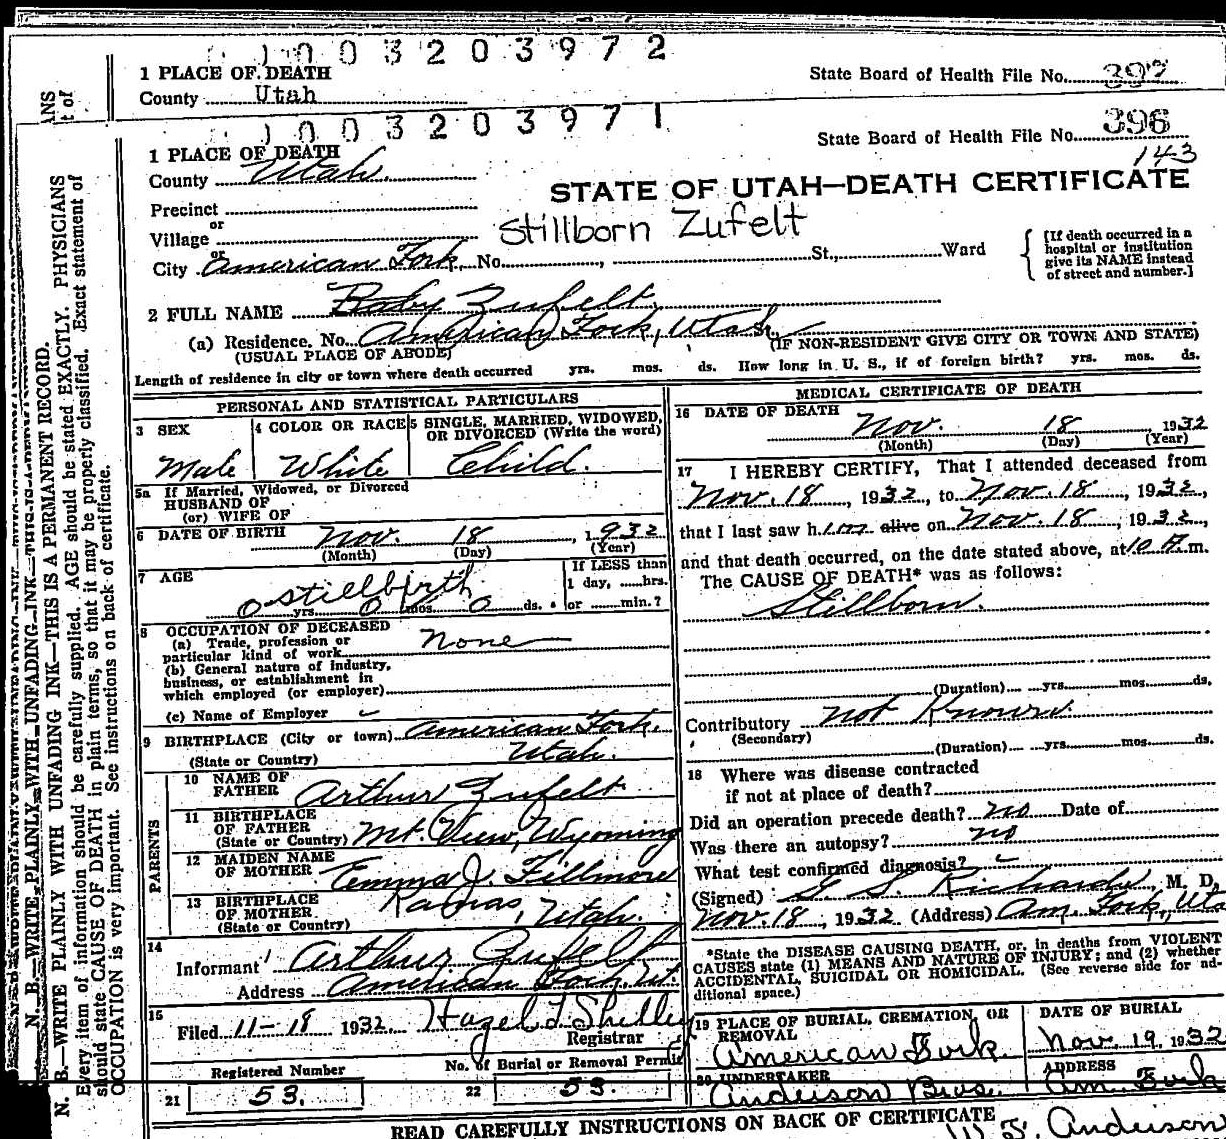 003203972
1 PLACE OF DEATH
State Board of Health File No. 397
County Utah
003203971
State Board of Health File No. 396
143
1 PLACE OF DEATH
County Utah.
STATE OF UTAH—DEATH CERTIFICATE
Precinct
or
Village
Stillborn Zufelt
or
City American Fork, No. , St., Ward
[If death occurred in a
hospital or institution
give its NAME instead
of street and number.]
2 FULL NAME Baby Zufelt
(a) Residence. No. American Fork, Utah.
(USUAL PLACE OF ABODE)
(IF NON-RESIDENT GIVE CITY OR TOWN AND STATE)
Length of residence in city or town where death occurred yrs. mos. ds. How long in U. S., if of foreign birth? yrs. mos. ds.
PERSONAL AND STATISTICAL PARTICULARS
3 SEX
Male
4 COLOR OR RACE
White
5 SINGLE, MARRIED, WIDOWED,
OR DIVORCED (Write the word)
Child.
5a If Married, Widowed, or Divorced
HUSBAND OF
(or) WIFE OF
6 DATE OF BIRTH Nov. 18, 1932
(Month) (Day) (Year)
7 AGE
stillbirth
0 yrs. 0 mos. 0 ds.
If LESS than
1 day, ......hrs.
or ......min.?
8 OCCUPATION OF DECEASED
(a) Trade, profession or
particular kind of work none
(b) General nature of industry,
business, or establishment in
which employed (or employer)
(c) Name of Employer
9 BIRTHPLACE (City or town) American Fork.
(State or Country) Utah.
PARENTS
10 NAME OF
FATHER Arthur Zufelt
11 BIRTHPLACE
OF FATHER
(State or Country) Mt. View, Wyoming
12 MAIDEN NAME
OF MOTHER Emma J. Fillmore
13 BIRTHPLACE
OF MOTHER
(State or Country) Kamas, Utah.
14
Informant Arthur Zufelt
Address American Fork, Ut.
15
Filed 11-18 1932 Hazel F Shelley
Registrar
Registered Number
21 53.
No. of Burial or Removal Permit
22 53.
MEDICAL CERTIFICATE OF DEATH
16 DATE OF DEATH
Nov. 18 1932
(Month) (Day) (Year)
17 I HEREBY CERTIFY, That I attended deceased from
Nov. 18, 1932, to Nov. 18, 1932,
that I last saw him alive on Nov. 18, 1932,
and that death occurred, on the date stated above, at 10 A. m.
The CAUSE OF DEATH* was as follows:
Stillborn.
(Duration) yrs. mos. ds.
Contributory not Known
(Secondary)
(Duration) yrs. mos. ds.
18 Where was disease contracted
if not at place of death?
Did an operation precede death? no Date of
Was there an autopsy? no
What test confirmed diagnosis?
(Signed) G. S. Richards, M. D.
Nov. 18, 1932 (Address) Am. Fork, Uta
*State the DISEASE CAUSING DEATH, or, in deaths from VIOLENT
CAUSES state (1) MEANS AND NATURE OF INJURY; and (2) whether
ACCIDENTAL, SUICIDAL OR HOMICIDAL. (See reverse side for ad-
ditional space.)
19 PLACE OF BURIAL, CREMATION, OR
REMOVAL
American Fork.
DATE OF BURIAL
Nov. 19, 1932
20 UNDERTAKER
Anderson Bros.
ADDRESS
Am. Fork
READ CAREFULLY INSTRUCTIONS ON BACK OF CERTIFICATE
Anderson
N. B.—WRITE PLAINLY WITH UNFADING INK—THIS IS A PERMANENT RECORD.
Every item of information should be carefully supplied. AGE should be stated EXACTLY. PHYSICIANS
should state CAUSE OF DEATH in plain terms, so that it may be properly classified. Exact statement of
OCCUPATION is very important. See instructions on back of certificate.